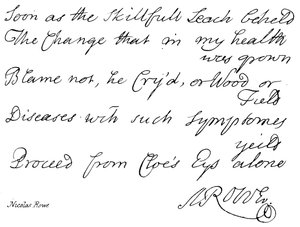 Soon as the Skillfull Leach beheld
The Change that in my health
was grown
Blame not, he Cry'd, or Wood or
Field
Diseases wth such Symptomes
yeild
Proceed from Cloe's Eys alone
NROWE
Nicolas Rowe